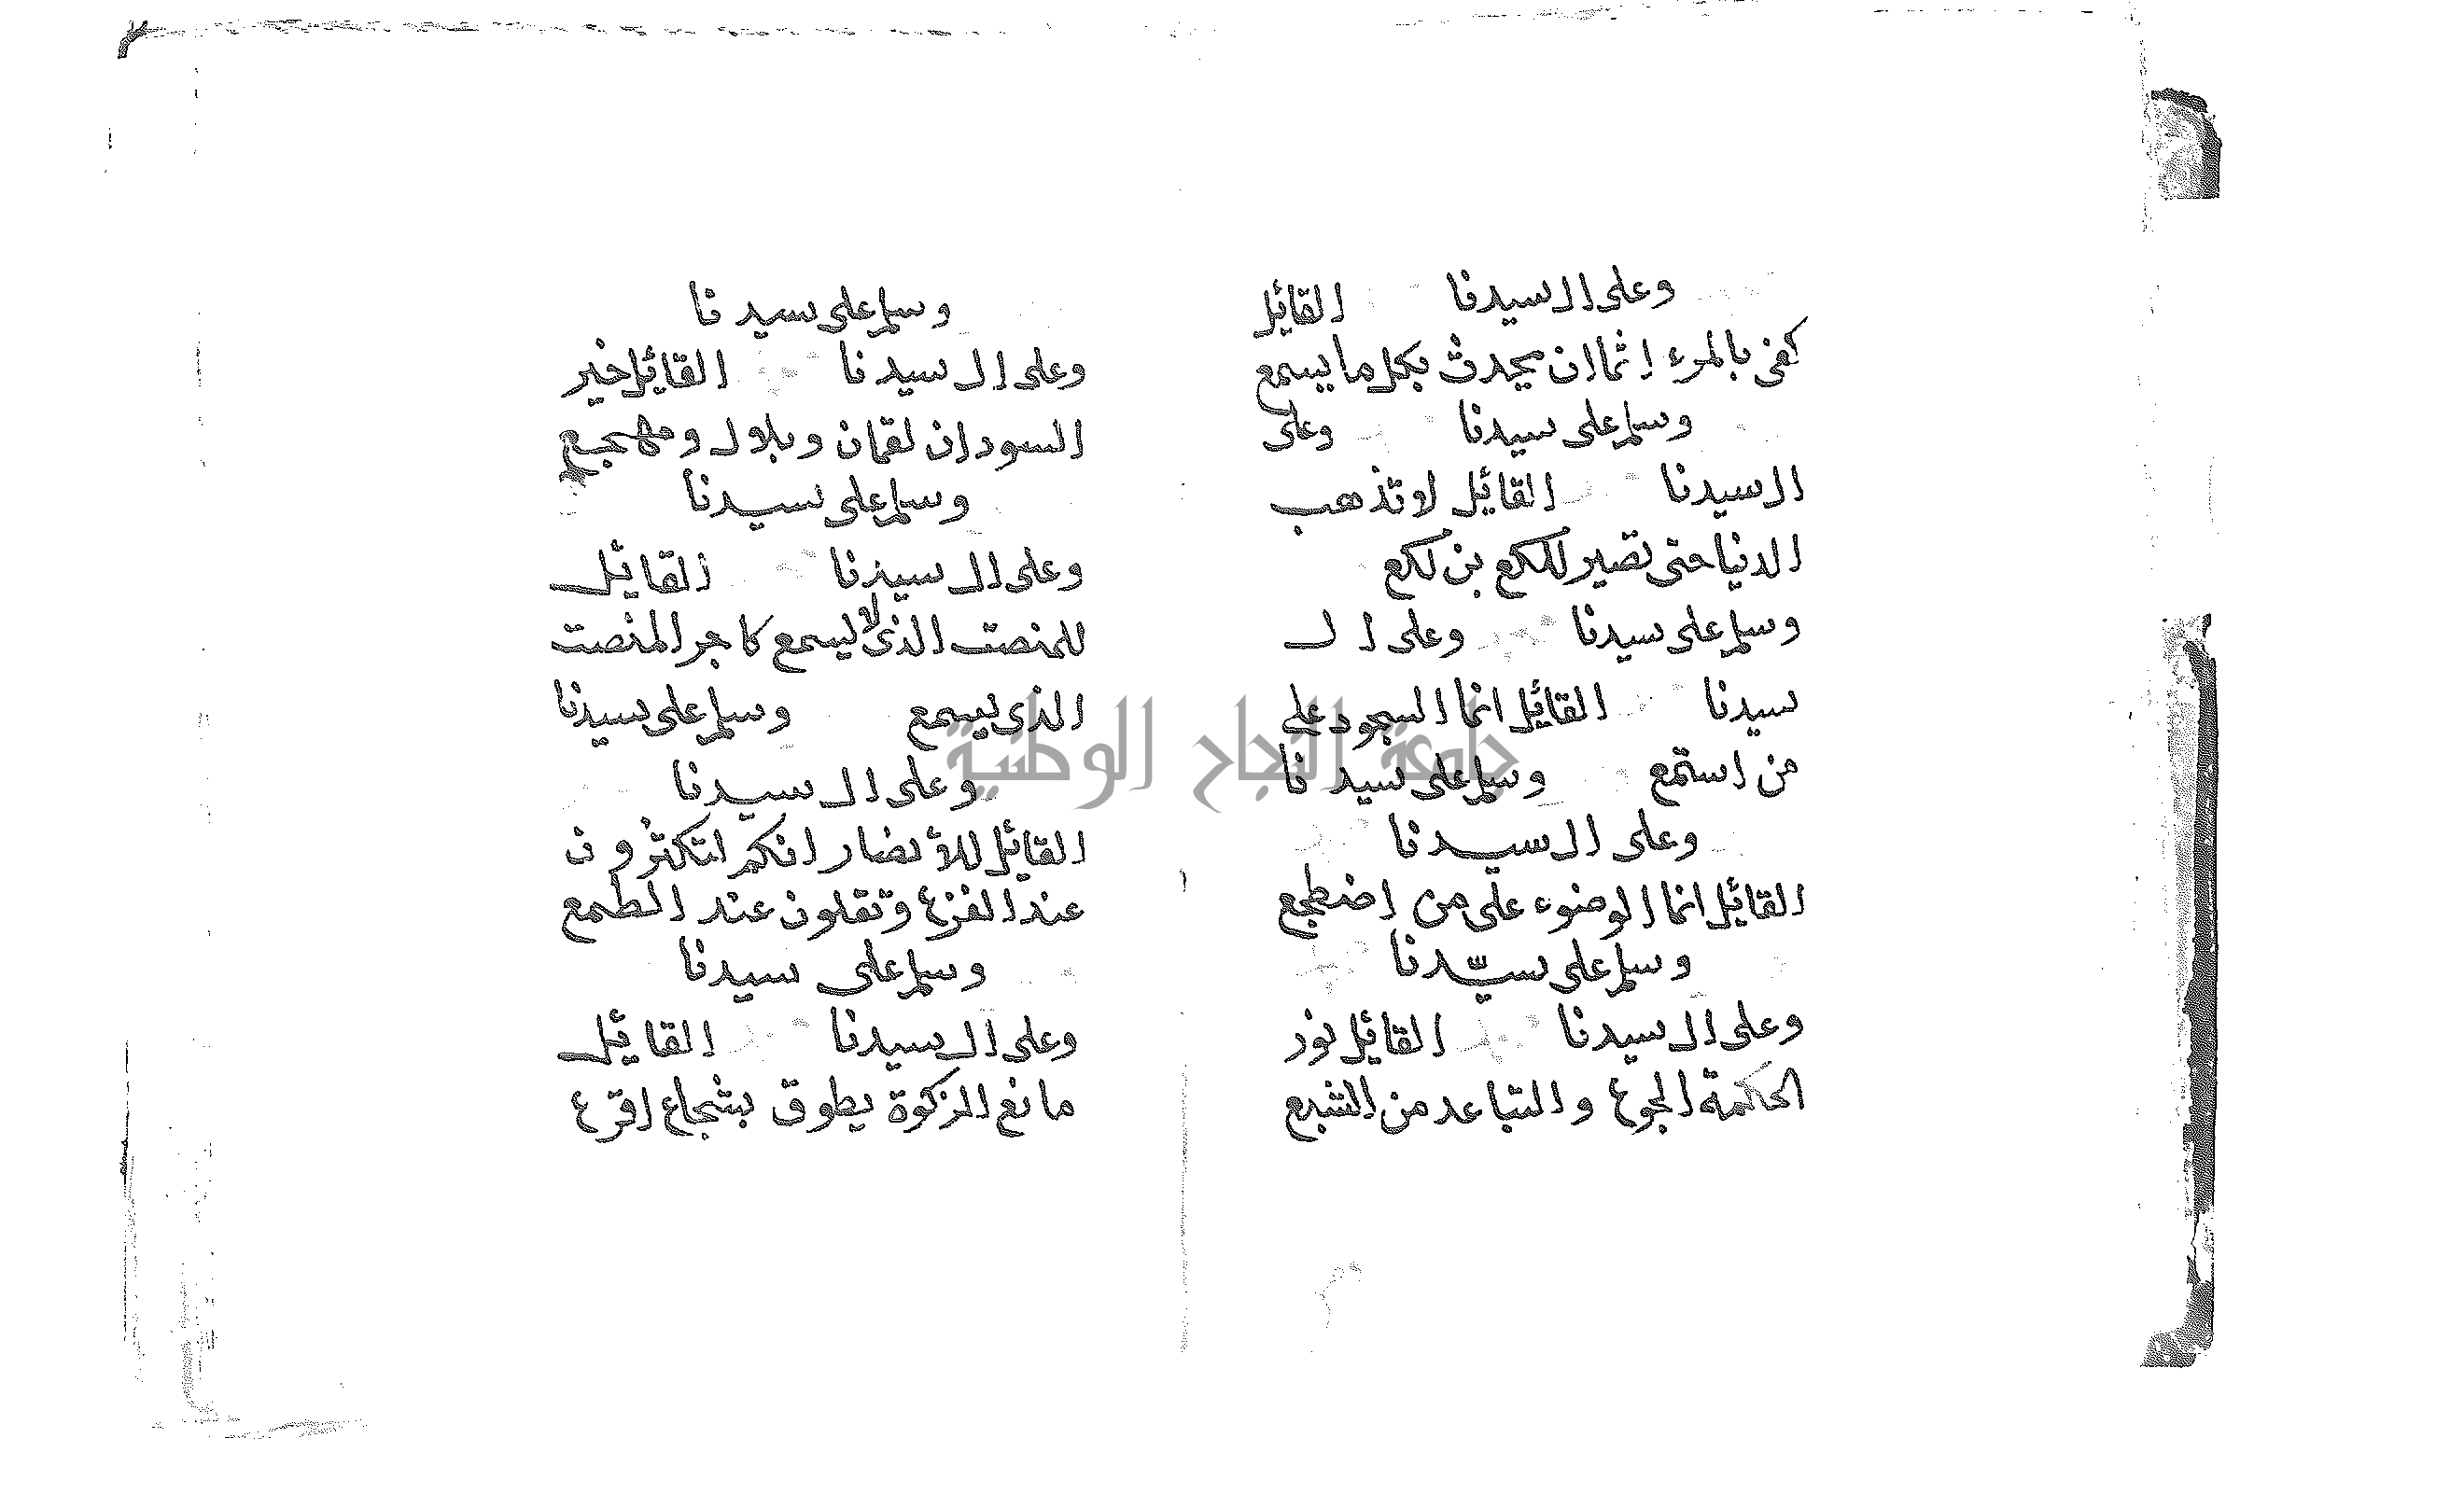 وعلى ال سيدنا القائل
كفى بالمرء اثما ان يحدث بكل ما يسمع
وسلم على سيدنا وعلى
ال سيدنا القائل لا تذهب
الدنيا حتى تصير للكع بن لكع
وسلم على سيدنا وعلى ال
سيدنا القائل انما السجود على
من استمع وسلم على سيدنا
وعلى ال سيدنا
القائل انما الوضوء على من اضطجع
وسلم على سيّدنا
وعلى ال سيدنا القائل نور
الحكمة الجوع والتباعد من الشبع
وسلم على سيدنا
وعلى ال سيدنا القائل خير
السودان لقمان وبلال ومهجع
وسلم على سيدنا
وعلى ال سيدنا القائل
للمنصت الذى لا يسمع كاجر المنصت
الذى يسمع وسلم على سيدنا
وعلى ال سيدنا
القائل للأنصار انكم لتكثرون
عند الفزع وتقلون عند الطمع
وسلم على سيدنا
وعلى ال سيدنا القائل
مانع الزكوة يطوق بشجاع اقرع
جامعة النجاح الوطنية